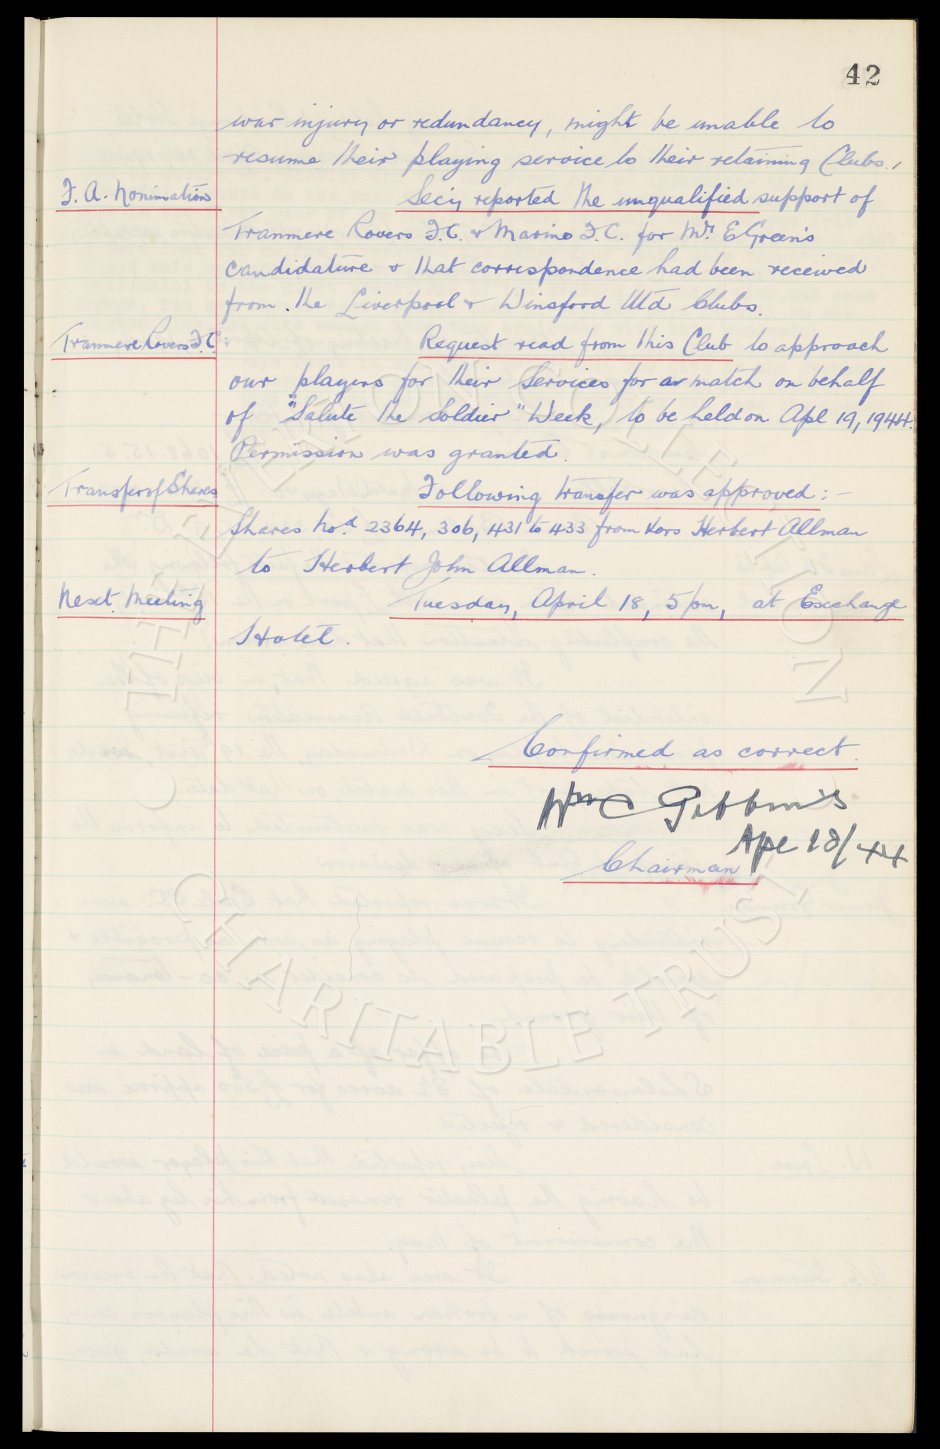 42
war injury or redundancy, might be unable to
resume their playing service to their retaining Clubs.
F.A. Nomination Secy reported the unqualified support of
Tranmere Rovers F.C. & Marine F.C. for Mr. E Green's
candidature & that correspondence had been received
from the Liverpool & Winsford Utd Clubs.
Tranmere Rovers F.C. Request read from this Club to approach
our players for their services for a match on behalf
of "Salute the Soldier" Week, to be held on Apl 19, 1944.
Permission was granted.
Transfer of Shares Following transfer was approved: -
Shares Nod. 2364, 306, 431 to 433 from Xors Herbert Allman
to Herbert John Allman.
Next Meeting Tuesday, April 18, 5pm, at Exchange
Hotel.
Confirmed as correct.
Wm C Gibbins
Apl 18/44
Chairman
THE EVERTON COLLECTION
CHARITABLE TRUST